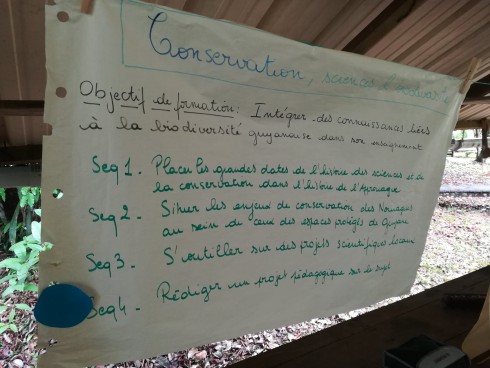 Conservation, sciences,
Objectif de formation: Intégrer des connaissances liées
à la biodiversité guyanaise dans son enseignement
Seq 1. Placer les grandes dates de l'histoire des sciences et de
la conservation dans l'histoire de l'Approuague
Seq 2. Situer les enjeux de conservation des Nouragues
au sein de ceux des espaces protégés de Guyane
Seq 3. S'outiller sur des projets scientifiques locaux
Seq 4. Rédiger un projet pédagogique sur le sujet